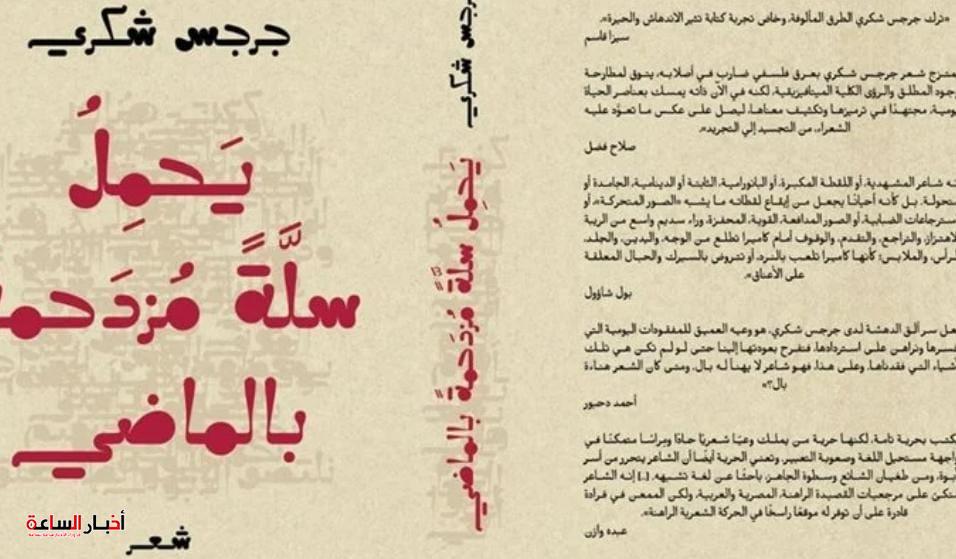 جرجس شكري
يَحمِلُ
سلَّةً مُزدَحمة
بالماضي
شعر
أخبار الساعة
جرجس شكري
يَحمِلُ سلَّةً مُزدَحمةً بالماضي
«ترك جرجس شكري الطرق المألوفة، وخاض تجربة كتابة تثير الاندهاش والحيرة».
سيزا قاسم
يمتزج شعر جرجس شكري بعرق فلسفي ضارب في أصلابه، يتوق لمطارحة
وجود المطلق والرؤى الكلية الميتافيزيقية، لكنه في الآن ذاته يمسك بعناصر الحياة
يومية، مجتهدًا في ترميزها وتكثيف معناها، ليصل على عكس ما تعوَّد عليه
الشعراء، من التجسيد إلى التجريد».
صلاح فضل
نه شاعر المشهدية، أو اللقطة المكبرة، أو البانورامية، الثابتة أو الدينامية، الجامدة أو
متحولة. بل كأنه أحيانًا يجعل من إيقاع لقطاته ما يشبه «الصور المتحركة»، أو
سترجاعات الضبابية، أو الصور المدافعة، القوية، المحفزة، وراء سديم واسع من الريبة
لاهتزاز، والتراجع، والتقدم، والوقوف أمام كاميرا تطلع من الوجه، واليدين، والجلد،
لرأس، والملابس؛ كأنها كاميرا تلعب بالنرد، أو تتروض بالسيرك والحبال المعلقة
على الأعناق».
بول شاؤول
لعل سر ألق الدهشة لدى جرجس شكري، هو وعيه العميق للمفقودات اليومية التي
خسرها ونراهن على استردادها، فنفرح بعودتها إلينا حتى لو لم تكن هي تلك
أشياء التي فقدناها. وعلى هذا، فهو شاعر لا يهنأ له بال. ومتى كان الشعر هناءة
بال؟»
أحمد دحبور
كتب بحرية تامة، لكنها حرية من يملك وعيًا شعريًّا حادًّا ومراسًا متمكنًا في
واجهة مستحيل اللغة وصعوبة التعبير. وتعني الحرية أيضًا أن الشاعر يتحرر من أسر
أبوة، ومن طغيان الشائع وسطوة الجاهز، باحثًا عن لغة تشبهه. [..] إنه الشاعر
متكئ على مرجعيات القصيدة الراهنة، المصرية والعربية، ولكن الممعن في فرادة
قادرة على أن توفر له موقعًا راسخًا في الحركة الشعرية الراهنة».
عبده وازن